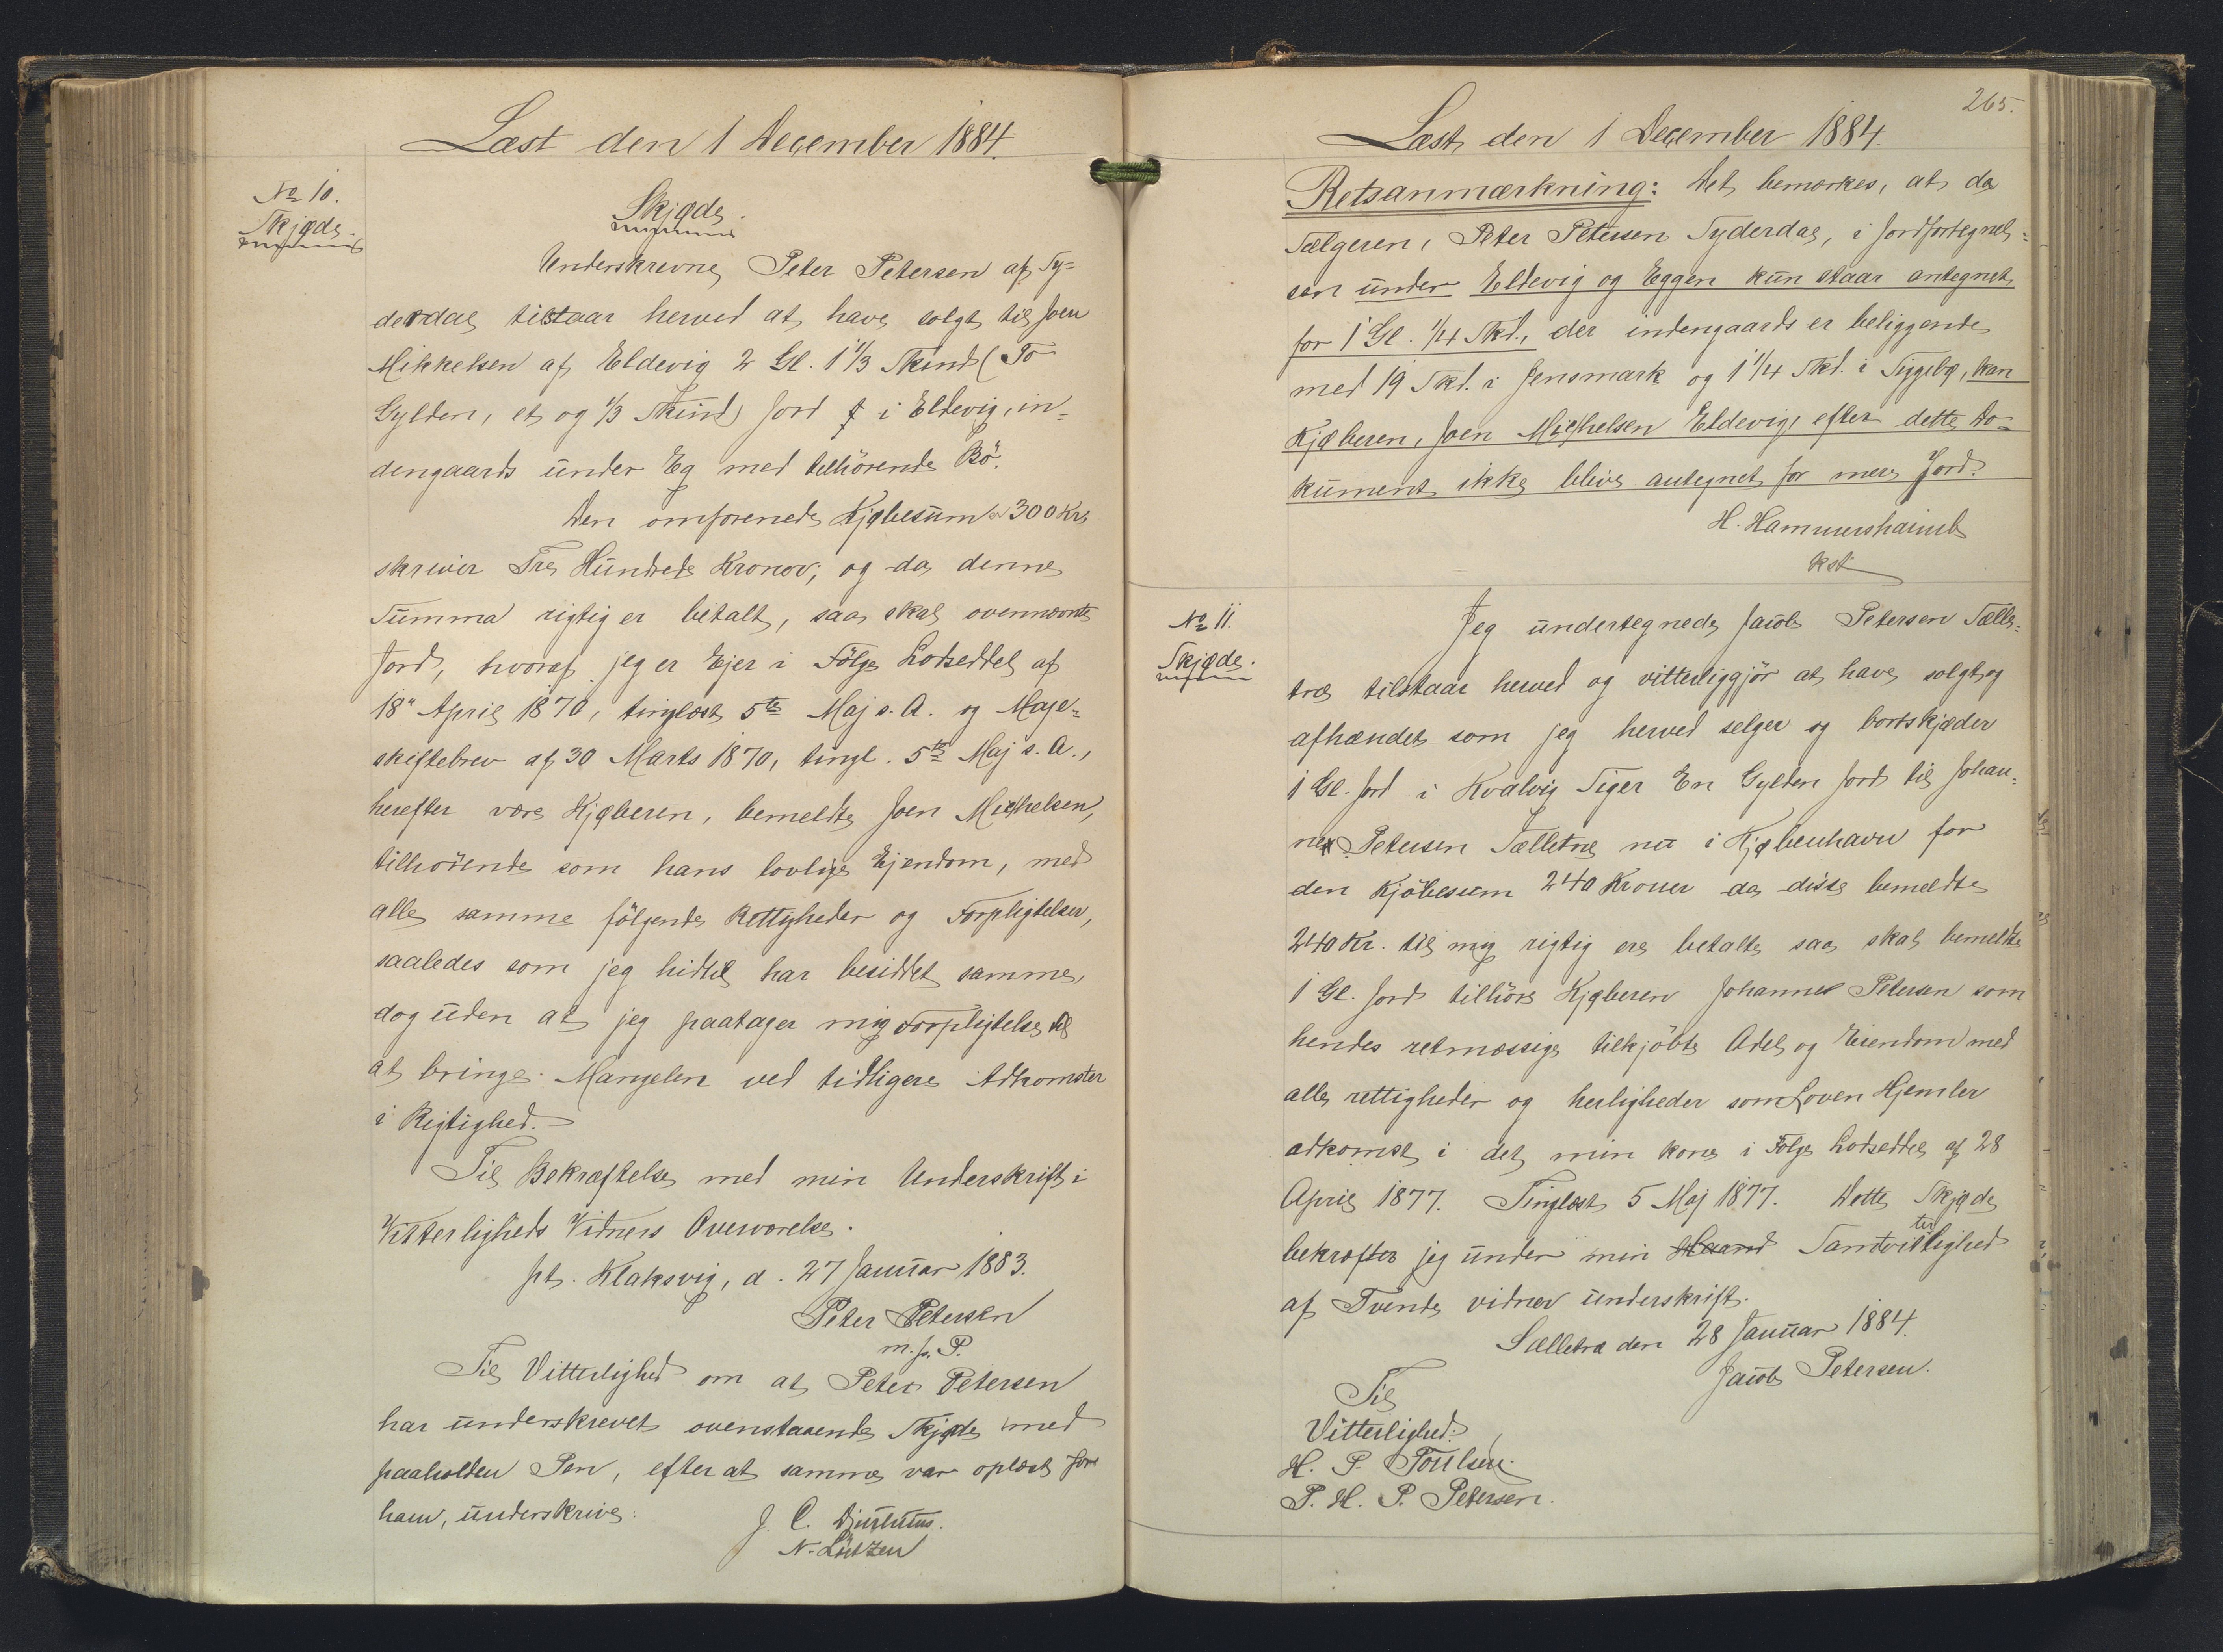 Læst den 1 December 1884.
No 10.
Skjøde.
Skjøde.
Underskrevne Peter Petersen af Sy=
derdal tilstaar herved at have solgt til Joen
Mikkelsen af Eldevig 2 Gl. 1 1/3 Skind (To
Gylden, et og 1/3 Skind) Jord i Eldevig, in-
dengaards under Eg med tilhörende Bö.
Den omforenede Kjøbesum er 300 Kr,
skriver Tre Hundrede Kroner, og da denne
Summa rigtig er betalt, saa skal ovennævnte
Jord, hvoraf jeg er Ejer i Fölge Lodseddel af
18" April 1870, tinglæst 5te Maj s. A. og Mage=
skiftebrev af 30 Marts 1870, tingl. 5te Maj s. A.,
herefter være Kjøberen, bemeldte Joen Michelsen,
tilhörende som hans lovlige Ejendom, med
alle samme fölgende Rettigheder og Forpligtelser,
saaledes som jeg hidtil har besiddet samme,
dog uden at jeg paatager mig Forpligtelse til
at bringe Mangelen ved tidligere Adkomster
i Rigtighed.
Til Bekræftelse med min Underskrift i
Vitterligheds Vidners Overværelse.
pt. Klaksvig, d. 27 Januar 1883.
Peter Petersen
m. p. P.
Til Vitterlighed om at Peter Petersen
har underskrevet ovenstaaende Skjøde med
paaholden Pen, efter at samme var oplæst for
ham, underskrive:
J. C. Djurhuus.
N. Lützen
265.
Læst den 1 December 1884.
Retsanmærkning: Det bemærkes, at da
Sælgeren, Peter Petersen Syderdal, i Jordfortegnel=
sen under Eldevig og Eggen kun staar antegnet
for 1 Gl. 1/4 Skd., der indengaards er beliggende
med 19 Skd. i Jensmark og 1 1/4 Skd. i Tygebø, kan
Kjøberen, Joen Michelsen Eldevig, efter dette Do-
kument ikke blive antegnet for mere Jord.
H. Hammershaimb
kst
No 11.
Skjøde.
Jeg undertegnede Jacob Petersen Sælle=
træ tilstaar herved og vitterliggjör at have solgt og
afhændet som jeg herved selger og bortskjøder
1 Gl. Jord i Kvalvig Siger En Gylden Jord til Johan=
nes Petersen Sælletræ nu i Kjøbenhavn for
den Kjöbesum 240 Kroner da disse bemeldte
240 Kr. til mig rigtig ere betalte saa skal bemeldte
1 Gl. Jord tilhöre Kjøberen Johannes Petersen som
hendes retmæssige tilkjöbte Odel og Eiendom med
alle rettigheder og herligheder som Loven Hjemler
adkomst i det min kone i Fölge Lodseddel af 28
April 1877. Tinglæst 5 Maj 1877. Dette Skjøde
bekræfter jeg under min Haand Samtvitterlighed
af Tvende vidner underskrift.
Sælletræ den 28 Januar 1884.
Jacob Petersen.
Til
Vitterlighed:
H. P. Poulsen.
P. H. P. Petersen.